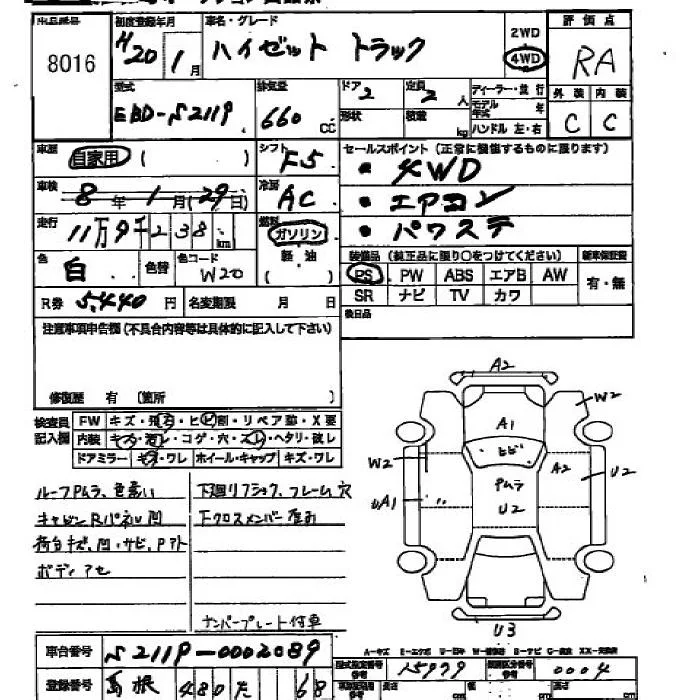 出品番号 初度登録年月 車名・グレード 評価点
8016 H20 1月 ハイゼット トラック 2WD 4WD RA
型式 排気量 ドア 2 定員 2人 ディーラー・並行 外装 内装
EBD-S211P 660 CC 形状 積載 kg モデル年式 年 ハンドル 左・右 C C
車歴 自家用 ( ) シフト F5 セールスポイント(正常に機能するものに限ります)
・4WD
車検 8年 1月(29日) 冷房 AC ・エアコン
走行 11万9千238km 燃料 ガソリン 軽油 ( ) ・パワステ
色 白 色替 色コード W20
装備品(純正品に限り○をつけてください) 新車保証書
PS PW ABS エアB AW 有・無
SR ナビ TV カワ
R券 5,440円 名変期限 月 日 後日品
注意事項申告欄(不具合内容等は具体的に記入して下さい)
修復歴 有 (箇所 )
検査員記入欄 FW キズ・飛石・ヒビ割・リペア跡・X要
内装 キズ・汚レ・コゲ・穴・スレ・ヘタリ・破レ
ドアミラー キズ・ワレ ホイール・キャップ キズ・ワレ
ルーフPムラ、色違い
キャビンRパネル凹
荷台キズ、凹・サビ、Pアト
ボディアセ
下廻リフショク、フレーム穴
Fクロスメンバー歪み
ナンバープレート付車
A2
W2
A1
ヒビ
W2 A2 U2
UA1 Pムラ
U2
U3
A-キズ E-エクボ U-凹み
車台番号 S211P-0002089 型式指定番号 15979 類別区分番号 0004
登録番号 島根 480 た 68